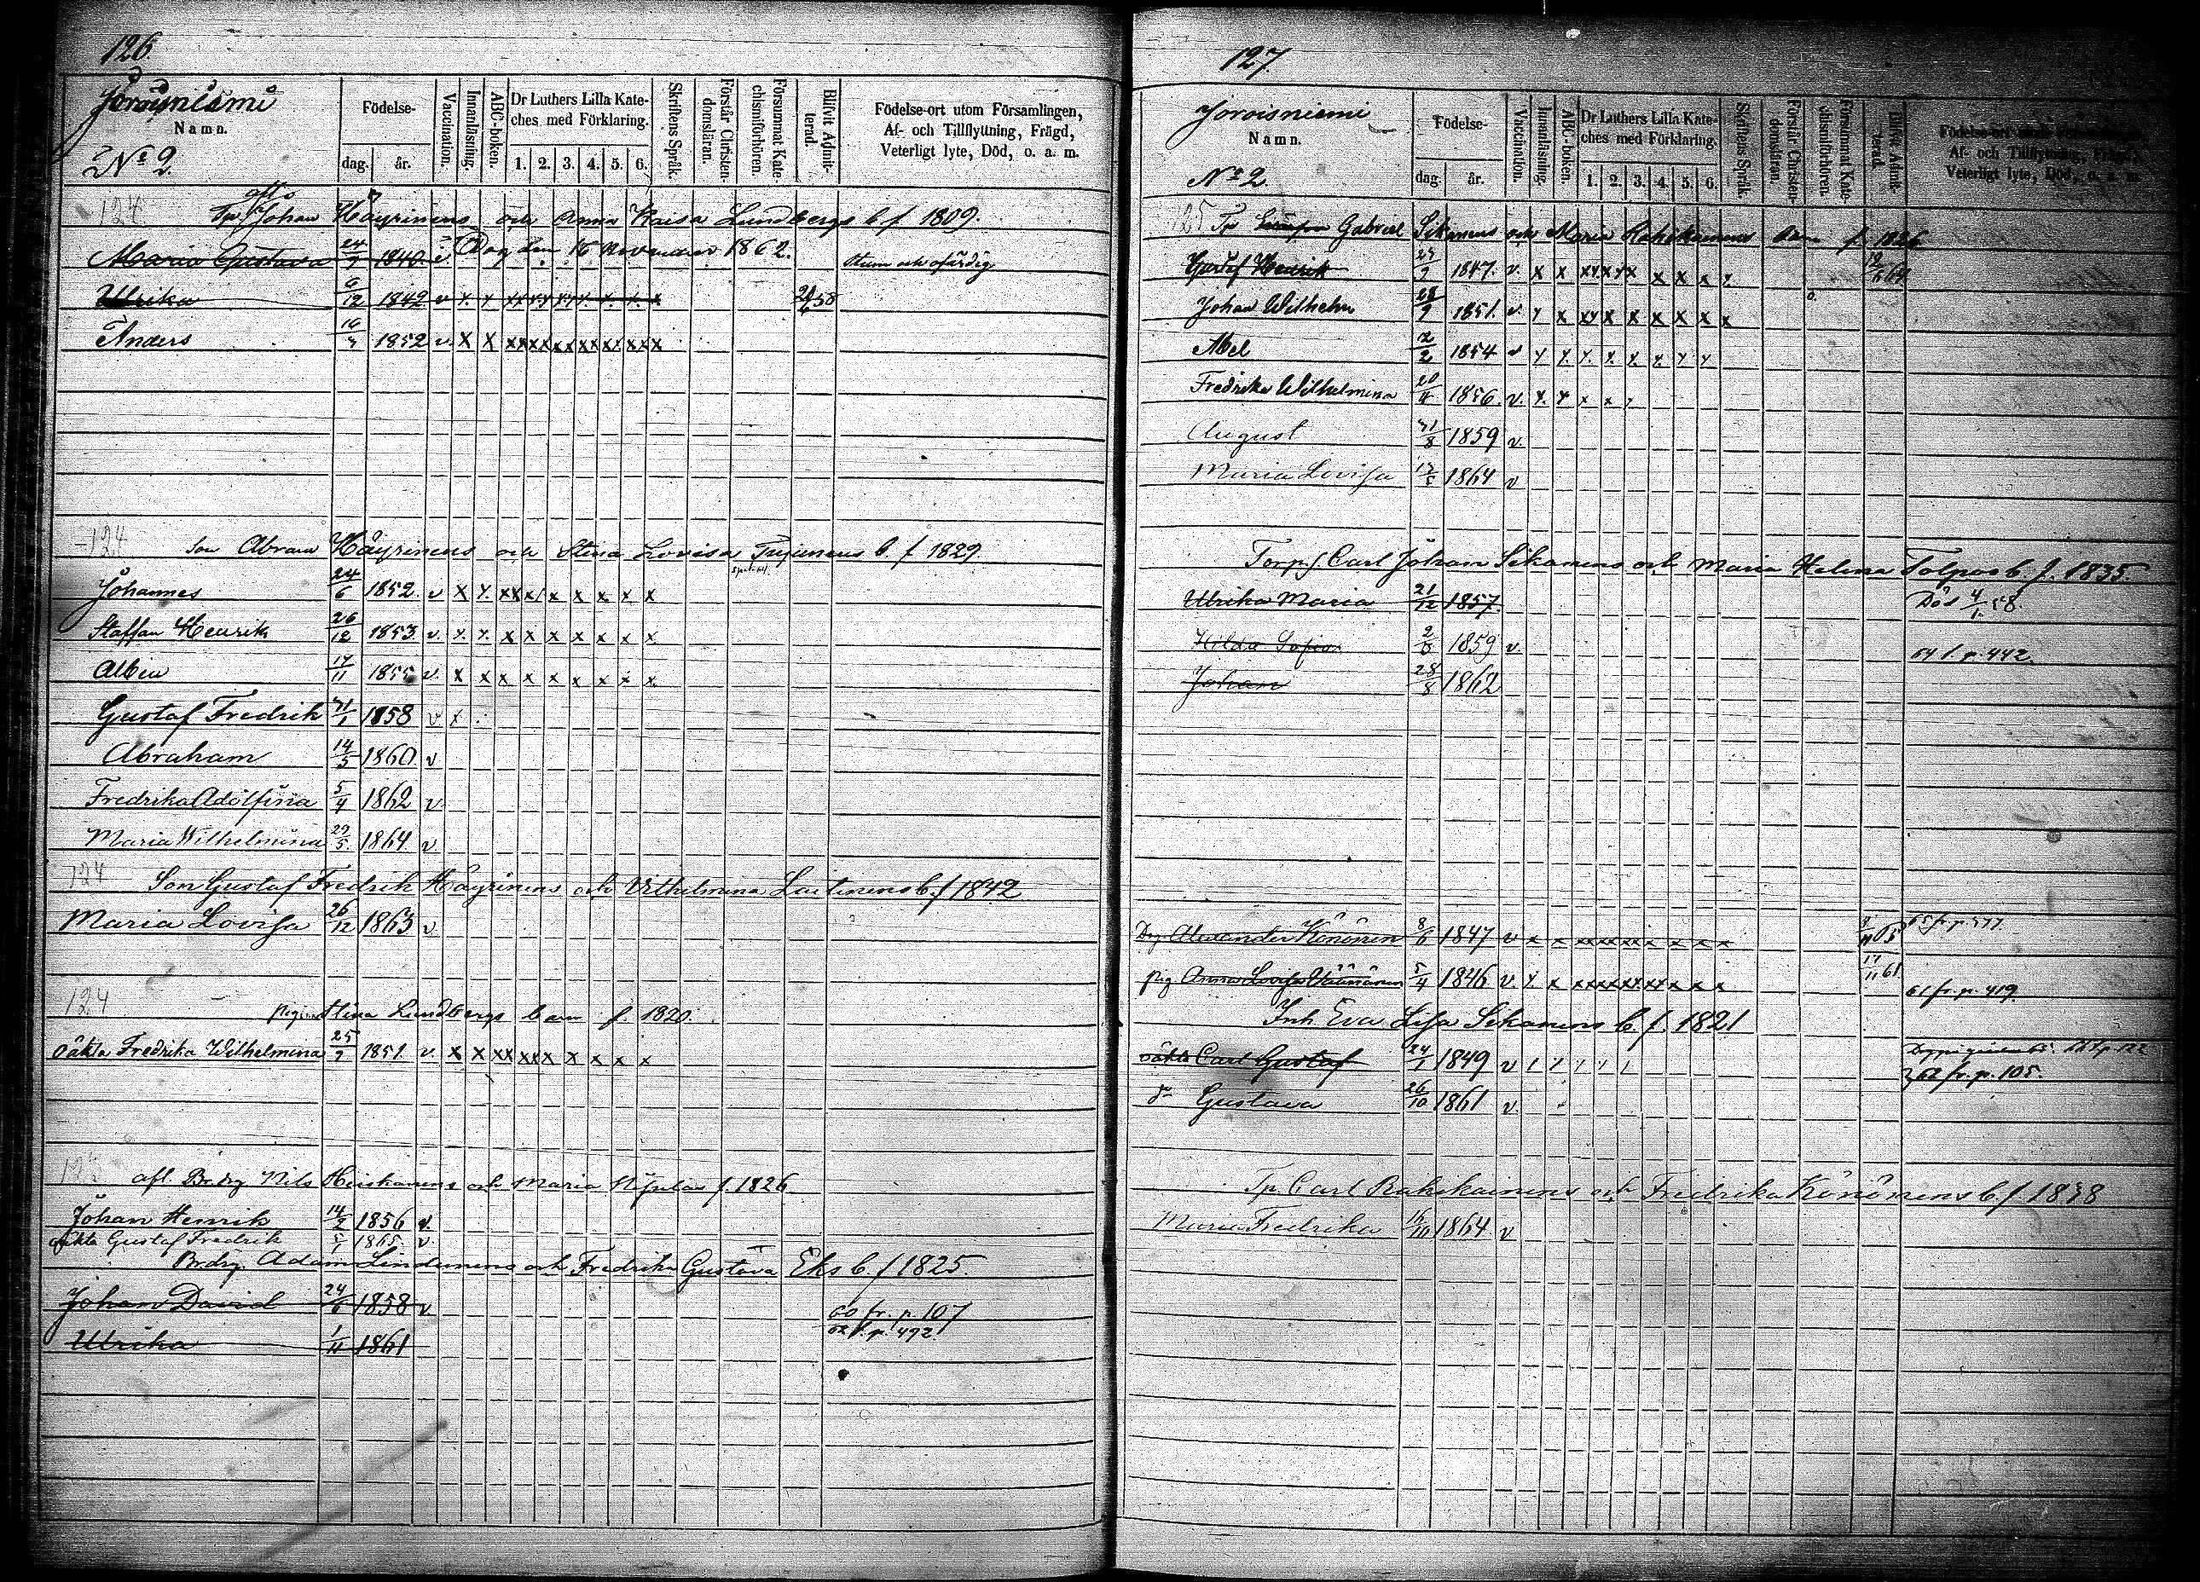 126.
Joroisniemi
Namn.
Nº 2.
Födelse-
dag. år.
Vaccination.
Innanläsning.
ABC-boken.
Dr Luthers Lilla Kate-
ches med Förklaring.
1. 2. 3. 4. 5. 6.
Skriftens Språk.
Förstår Christen-
domsläran.
Försummat Kate-
chismiförhören.
Blifvit Admit-
terad.
Födelse-ort utom Församlingen,
Af- och Tillflyttning, Frägd,
Veterligt lyte, Död, o. a. m.
124
Tp. Johan Häyrinens och Anna Kaisa Lundbergs b. f. 1809.
Maria Gustava 24/7 1840. v Dog den 16 November 1862. Stum och ofärdig
Ulrika 6/12 1842 v x x
Anders 1852 v x x
124
Son Abram Häyrinens och Stina Lovisa b. f 1829
Johannes 24/6 1852 v x x
Staffan Henrik 26/12 1853 v. x. x.
Albin 17/11 1855 v. x x
Gustaf Fredrik 31/1 1858 v x
Abraham 14/5 1860 v
Fredrika Adolfina 5/4 1862 v
Maria Wilhelmina 29/5 1864 v
124
Son Gustaf Fredrik Häyrinens och Vilhelmina Laitinens b. f 1842
Maria Lovisa 26/12 1863 v
124
Stina Lundbergs barn f. 1820.
oäkta Fredrika Wilhelmina 25/7 1851. v. x x
afl. Brdrg Nils Heiskanens och Maria f. 1826
Johan Henrik 14/2 1856 v.
oäkta Gustaf Fredrik 5/1 1865 v.
Brdrg. Adam Lindunens och Fredrika Gustava Eks b. f 1825.
Johan David 24/6 1858 v 60 fr. p. 107
Ulrika 1/11 1861
127.
Joroisniemi
Namn.
Nº 2
Födelse-
dag. år.
Vaccination.
Innanläsning.
ABC-boken.
Dr Luthers Lilla Kate-
ches med Förklaring.
1. 2. 3. 4. 5. 6.
Skriftens Språk.
Förstår Christen-
domsläran.
Försummat Kate-
chismiförhören.
Blifvit Admit-
terad.
Födelse-ort utom Församlingen,
Af- och Tillflyttning, Frägd,
Veterligt lyte, Död, o. a. m.
125 Tp Gabriel Sikanens och Maria Rahikainens barn f. 1826
Gustaf Henrik 1847. v. x x
Johan Wilhelm 28/9 1851. v. x x
Abel 2/2 1854 v x x
Fredrika Wilhelmina 20/4 1856. v. x. x
August 31/8 1859 v.
Maria Lovisa 1864 v
Torp. s. Carl Johan Sikanens och Maria Helena Tolpos b. f. 1835.
Ulrika Maria 21/12 1857. Död 4/1 58.
Hilda Sofia 1859 v
64 t. p. 442.
Johan 28/8 1862
Drg Alexander Könönen 8/6 1847 v x x
Pig. Anna Lovisa Väänänen 5/4 1846 v. x. x 61 fr. p. 419.
Inh Eva Lisa Sikanens b. f. 1821
oäkta Carl Gustaf 24/1 1849 v
62 fr. p. 105.
Gustava 26/10 1861 v.
Tp. Carl Rahikainens och Fredrika Könönens b. f 1838
Maria Fredrika 16/10 1864 v